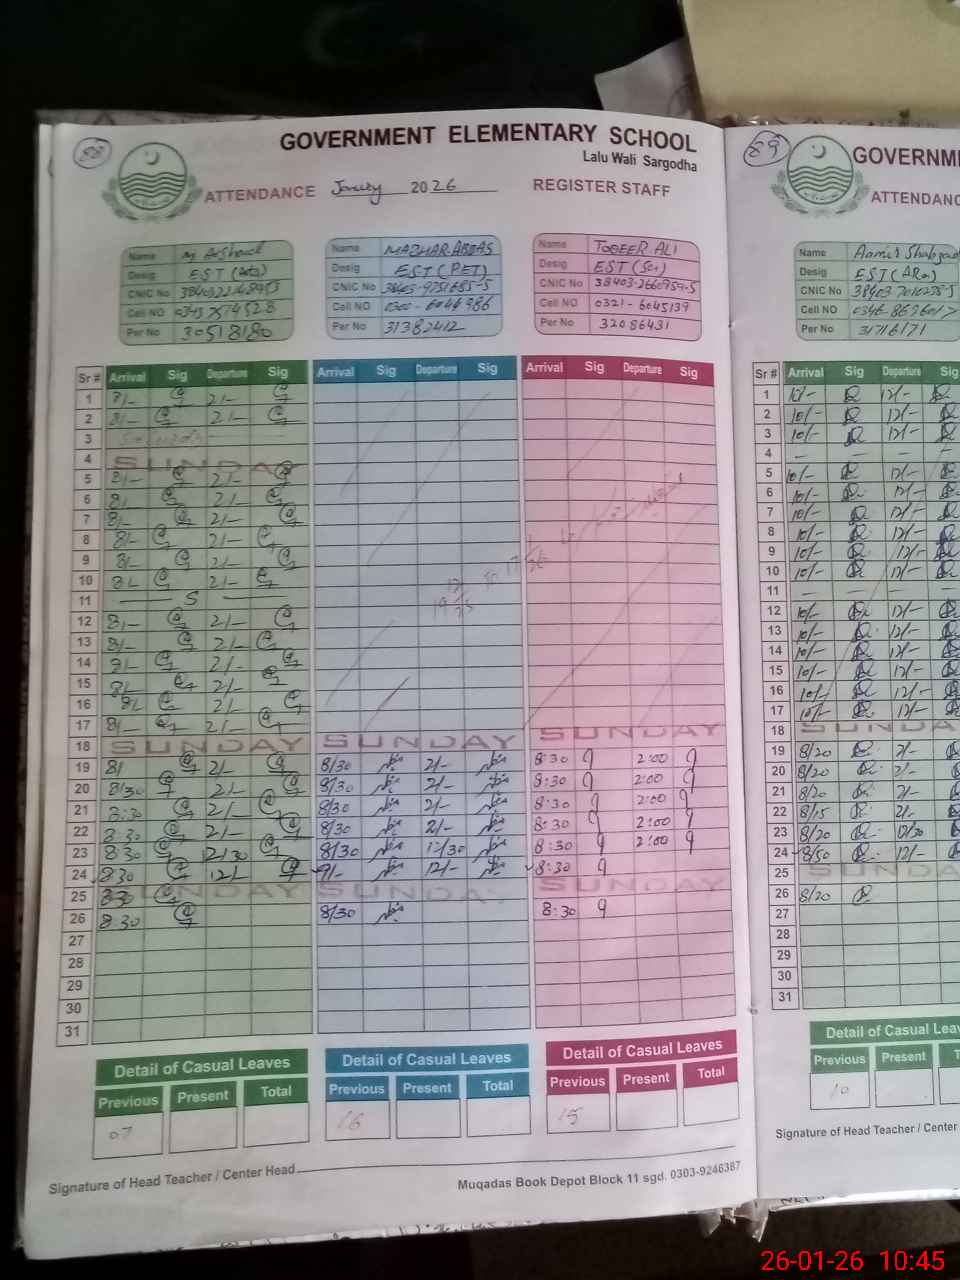 88
GOVERNMENT ELEMENTARY SCHOOL
Lalu Wali Sargodha
ATTENDANCE 2026 REGISTER STAFF
Name M
Desig EST
CNIC No
Cell NO
Per No 30518180
Name MAZHAR ABBAS
Desig EST (PET)
CNIC No
Cell NO 0300-6044986
Per No 31382412
Name TOQEER ALI
Desig EST (Sci)
CNIC No 38403-2660959-5
Cell NO 0321-6045139
Per No 32086431
Sr # Arrival Sig Departure Sig Arrival Sig Departure Sig Arrival Sig Departure Sig
1 8/- 2/-
2 8/- 2/-
3
4 SUNDAY
5 8/- 2/-
6 8/- 2/-
7 8/- 2/-
8 8/- 2/-
9 8/- 2/-
10 8/- 2/-
11 S
12 8/- 2/-
13 8/- 2/-
14 8/- 2/-
15 8/- 2/-
16 8/- 2/-
17 8/- 2/-
18 SUNDAY SUNDAY SUNDAY
19 8/ 2/- 8/30 2/- 8:30 2:00
20 8/30 2/- 8/30 2/- 8:30 2:00
21 8:30 2/- 8/30 2/- 8:30 2:00
22 8:30 2/- 8/30 2/- 8:30 2:00
23 8:30 8/30 12/30 8:30 2:00
24 8:30 12/- 9/- 12/- 8:30
25 SUNDAY SUNDAY SUNDAY
26 8:30 8/30 8:30
27
28
29
30
31
Detail of Casual Leaves Detail of Casual Leaves Detail of Casual Leaves
Previous Present Total Previous Present Total Previous Present Total
07 16 15
Signature of Head Teacher / Center Head
Muqadas Book Depot Block 11 sgd. 0303-9246387
89
GOVERNM
ATTENDANC
Name Aamir
Desig EST
CNIC No
Cell NO
Per No 31716171
Sr # Arrival Sig Departure Sig
1 12/-
2 10/- 12/-
3 10/- 12/-
4
5 10/- 12/-
6 10/- 12/-
7 10/- 12/-
8 10/- 12/-
9 10/- 12/-
10 10/- 12/-
11
12 10/- 12/-
13 10/- 12/-
14 10/- 12/-
15 10/- 12/-
16 10/- 12/-
17 10/- 12/-
18 SUNDA
19 8/20 2/-
20 8/20 2/-
21 8/20 2/-
22 8/15 2/-
23 8/20 12/30
24 8/50 12/-
25 SUNDA
26 8/20
27
28
29
30
31
Detail of Casual Lea
Previous Present T
10
Signature of Head Teacher / Center
26-01-26 10:45